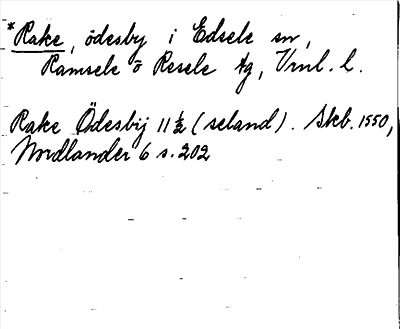 *Rake, ödesby i Edsele sn,
Ramsele o Resele tg, Vrnl. l.
Rake Ödesbij 11½ (seland). Skb. 1550,
Nordlander 6 s. 202